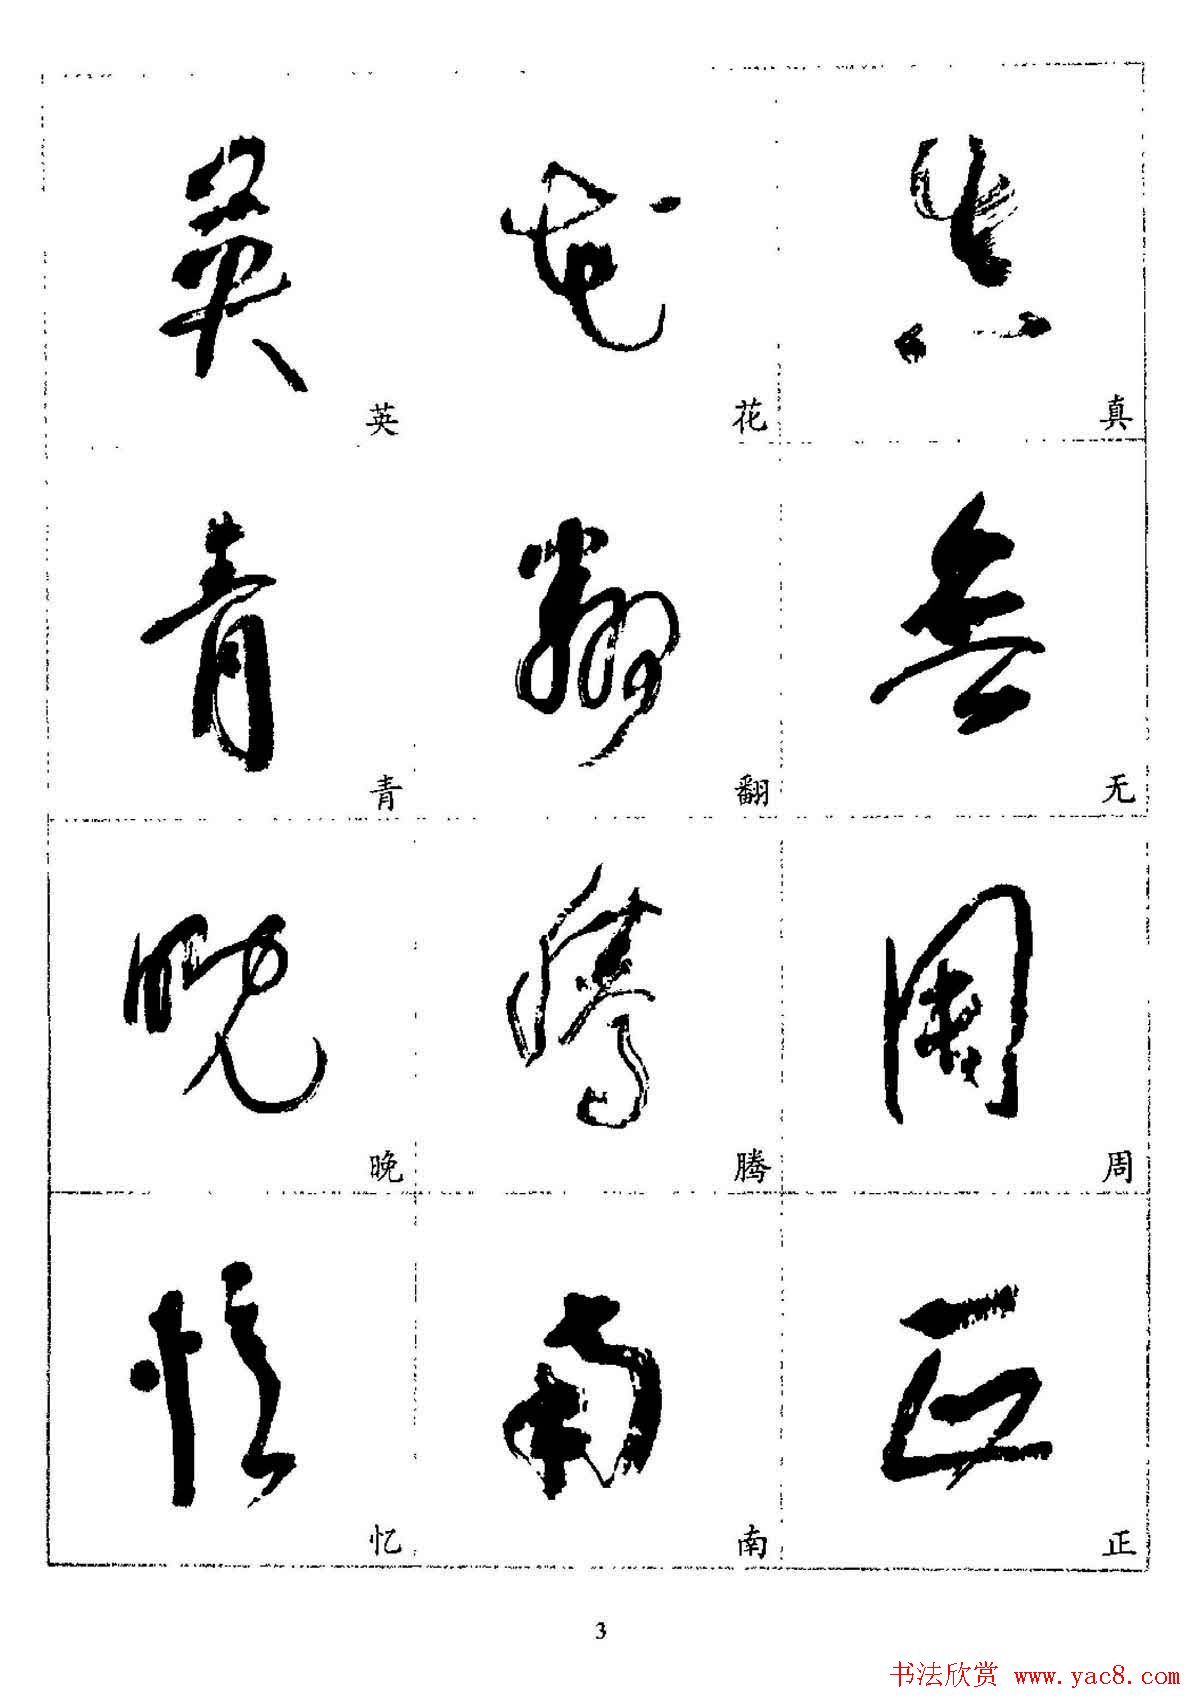 英 花 真
青 翻 无
晚 腾 周
忆 南 正
3
书法欣赏 www.yac8.com